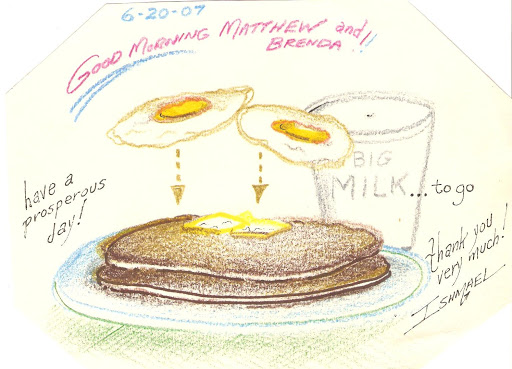 6-20-07
GOOD MORNING MATTHEW and
BRENDA!!
BIG
MILK...to go
have a
prosperous
day!
thank you
very much!
ISHMAEL